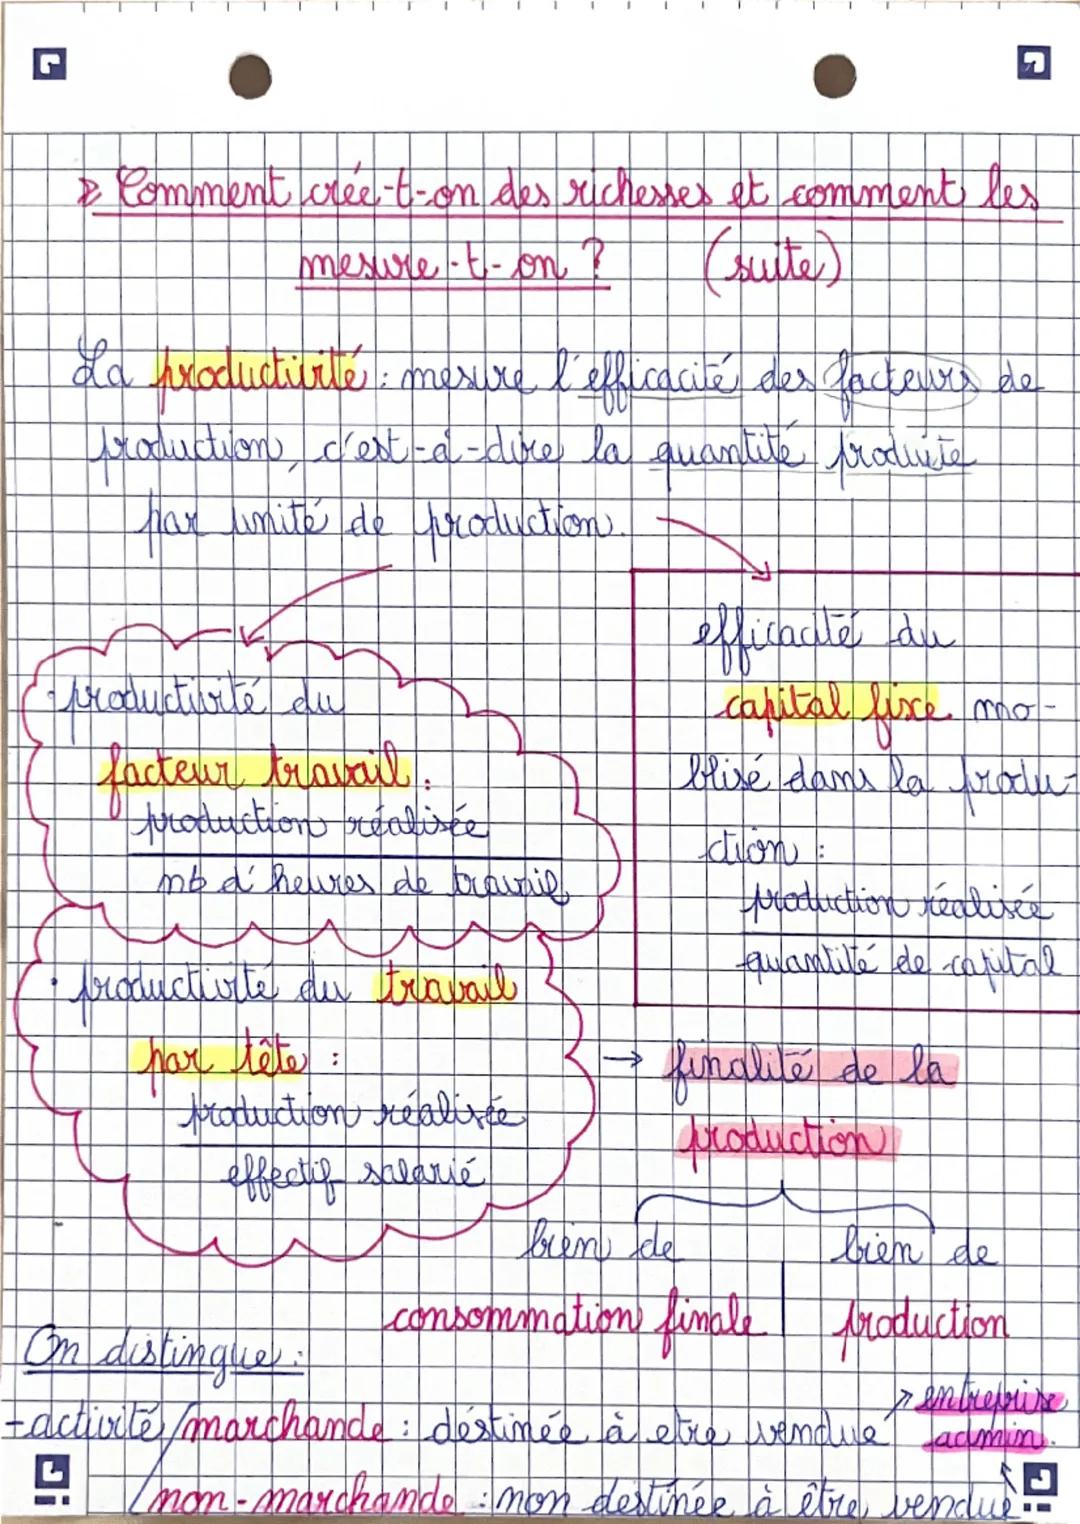 Comment crée-t-on des richesses et comment les
mesure-t-on ? (suite)
La productivité : mesure l'efficacité des facteurs de
production, c'est-à-dire la quantité produite
par unité de production.
productivité du
facteur travail :
production réalisée
nb d'heures de travail
efficacité du
capital fixe mo-
blisé dans la produ-
ction :
production réalisée
quantité de capital
• productivité du travail
par tête :
production réalisée
effectif salarié
→ finalité de la
production
bien de
consommation finale
bien de
production
On distingue :
- activité / marchande : déstinée à etre vendue → entreprise
/ non-marchande : non destinée à être vendue admin.